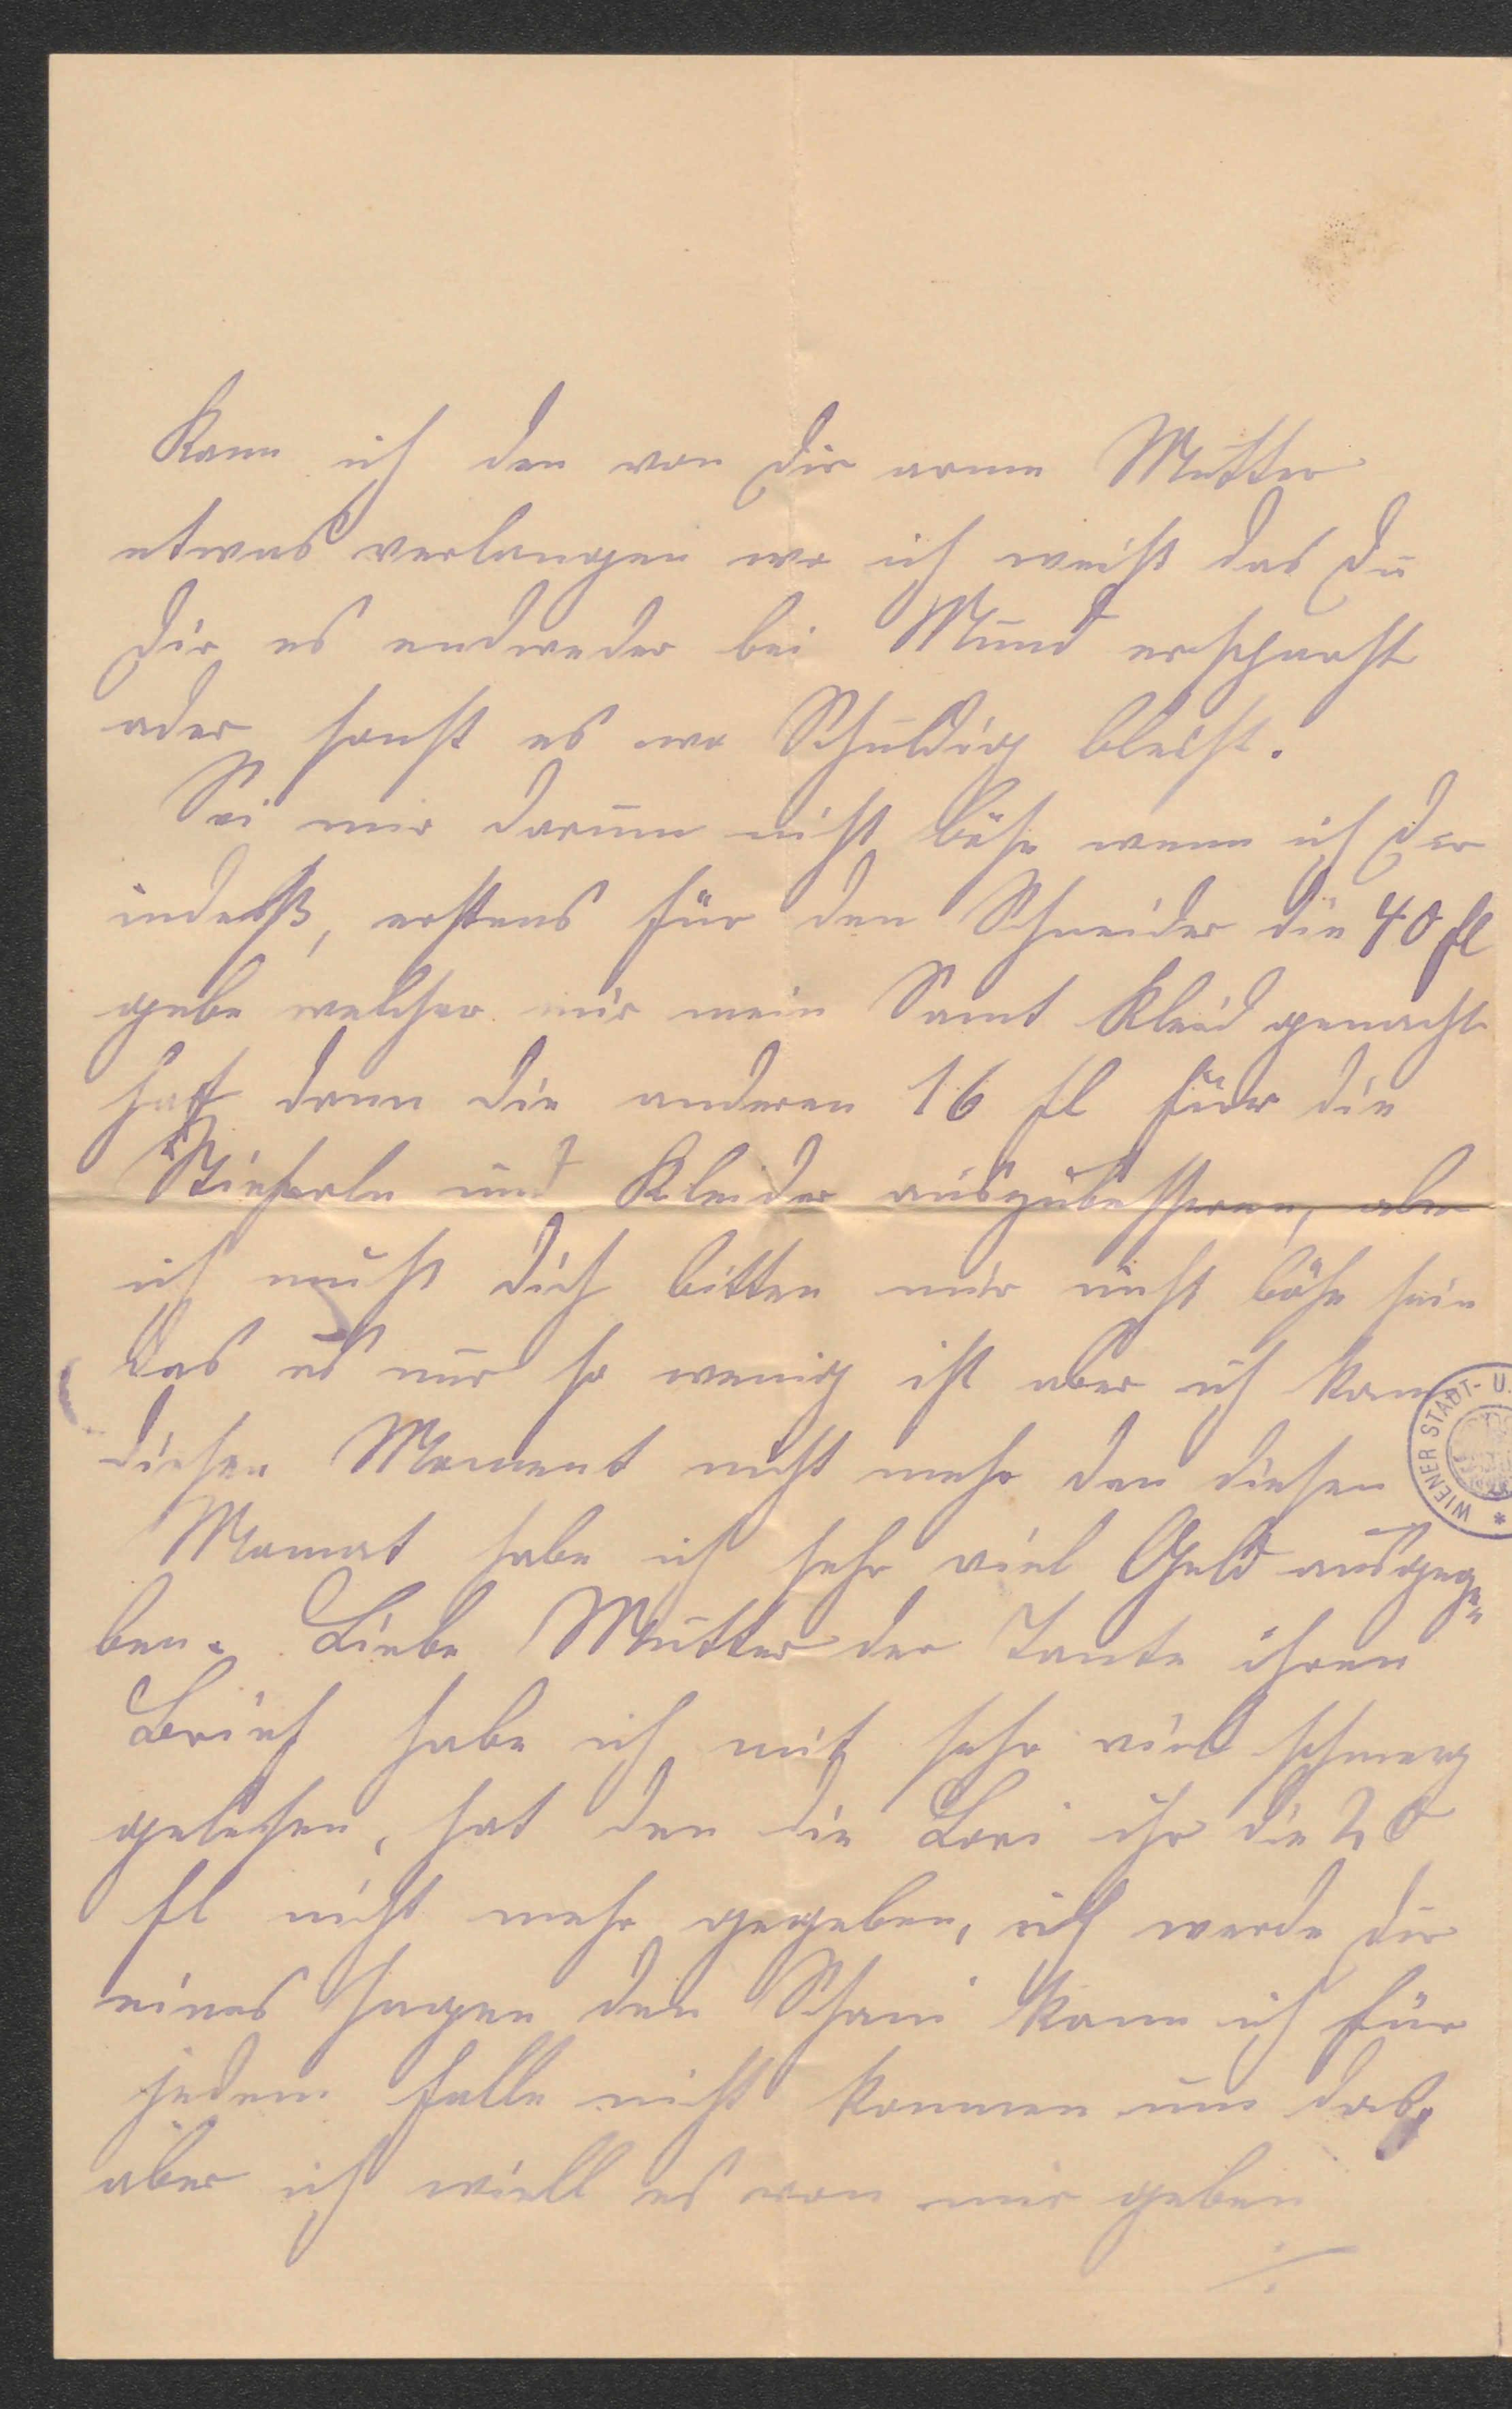 Kann ich den von Dir arme Mutter
etwas verlangen wo ich weist das Du
Dir es endweder bei Mund erspaarst
oder sonst es wo Schuldig bleibst.
Sei mir darum nicht böse wenn ich Dir
indess, erstens für den Schneider die 40 fl
gebe welcher mir mein Samt Kleid gemacht
hat dann die anderen 16 fl für die
Stieferln und Kleider auszubesseren, aber
ich must dich bitten mir nicht böse sein
das es nur so wenig ist aber ich kann
diesen Moment nicht mehr den diesen
Monat habe ich sehr viel Geld ausgege=
ben. Liebe Mutter der Tante ihren
Brief habe ich mit sehr viel schmerz
gelesen, hat den die Lori ihr die 20
fl nicht mehr gegeben, ich werde dir
eines sagen den Schani kann ich für
jedem falle nicht kommen um das
aber ich wiell es von mir geben
./.
WIENER STADT- U.